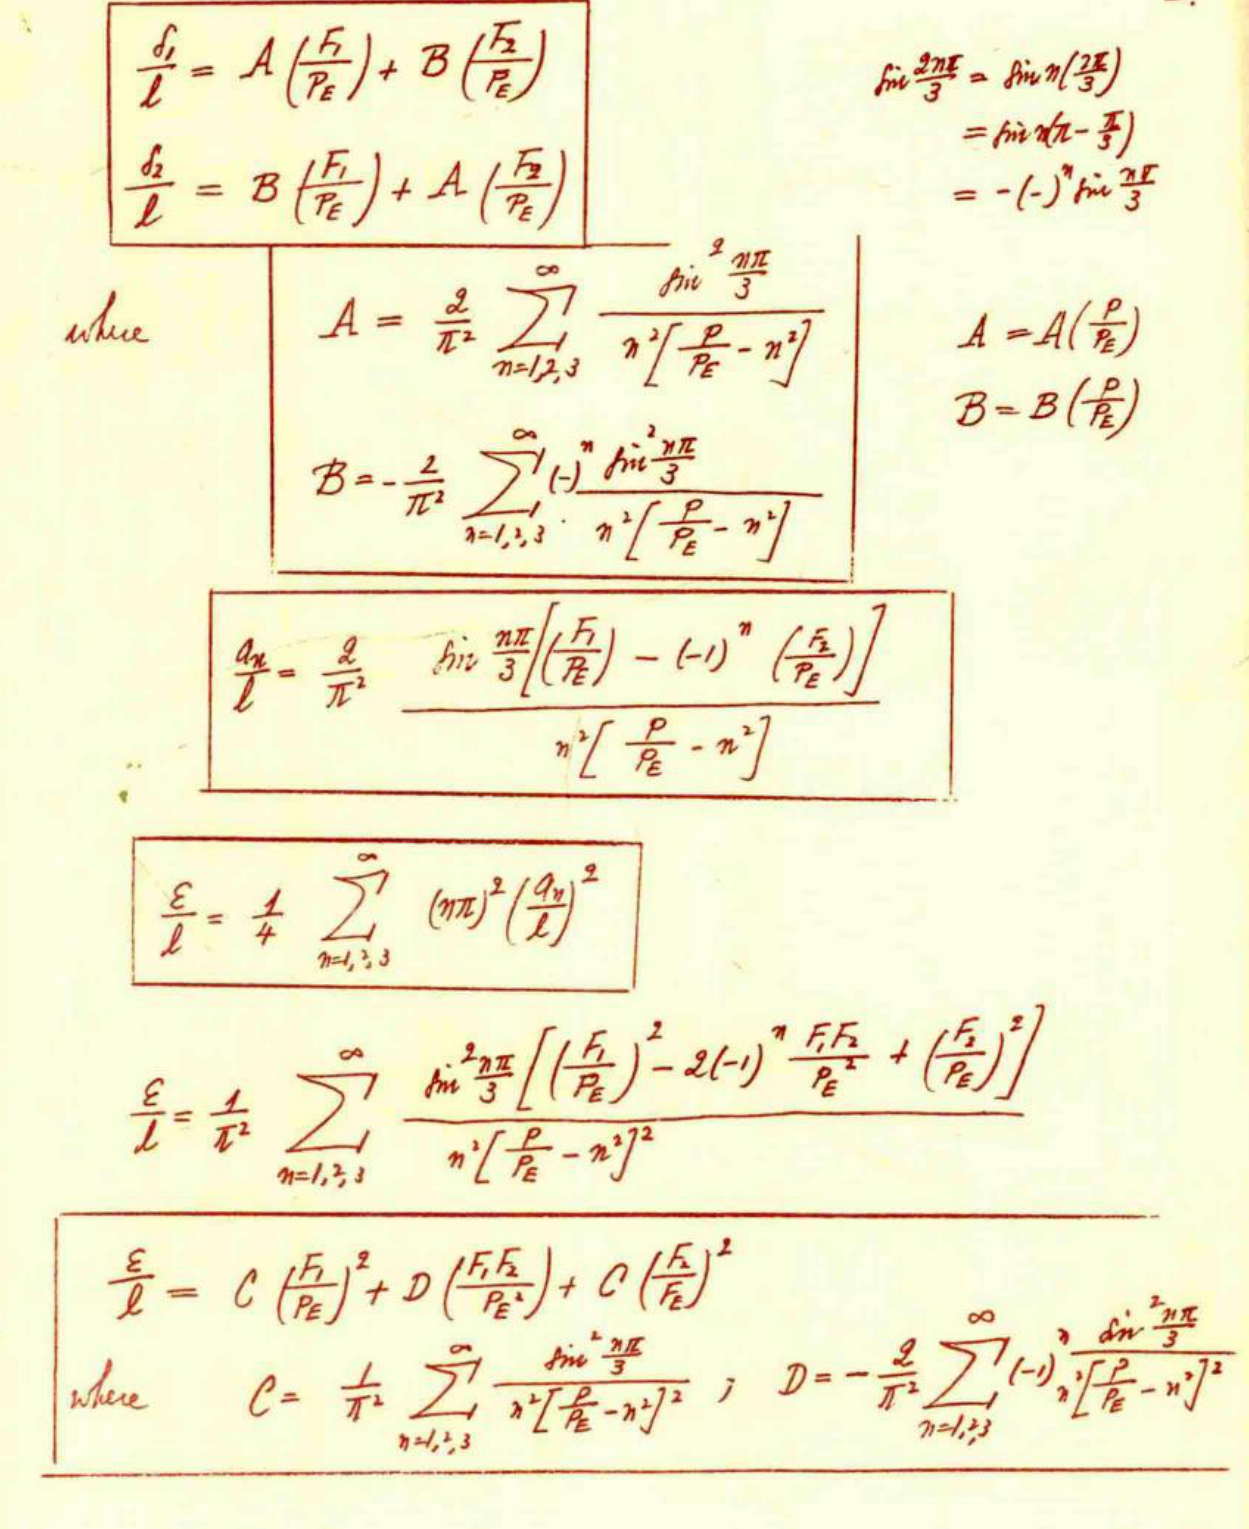 δ₁/l = A (F₁/P_E) + B (F₂/P_E)
sin 2nπ/3 = sin n(2π/3)
= sin n(π - π/3)
δ₂/l = B (F₁/P_E) + A (F₂/P_E)
= -(-)ⁿ sin nπ/3
where A = 2/π² ∑_{n=1,2,3}^∞ sin² nπ/3 / n²[P/P_E - n²]
A = A(P/P_E)
B = B(P/P_E)
B = - 2/π² ∑_{n=1,2,3}^∞ (-)ⁿ sin² nπ/3 / n²[P/P_E - n²]
aₙ/l = 2/π² sin nπ/3 [(F₁/P_E) - (-1)ⁿ (F₂/P_E)] / n²[P/P_E - n²]
ε/l = 1/4 ∑_{n=1,2,3}^∞ (nπ)² (aₙ/l)²
ε/l = 1/π² ∑_{n=1,2,3}^∞ sin² nπ/3 [(F₁/P_E)² - 2(-1)ⁿ F₁F₂/P_E² + (F₂/P_E)²] / n²[P/P_E - n²]²
ε/l = C (F₁/P_E)² + D (F₁F₂/P_E²) + C (F₂/F_E)²
where C = 1/π² ∑_{n=1,2,3}^∞ sin² nπ/3 / n²[P/P_E - n²]² ; D = - 2/π² ∑_{n=1,2,3}^∞ (-1)ⁿ sin² nπ/3 / n²[P/P_E - n²]²